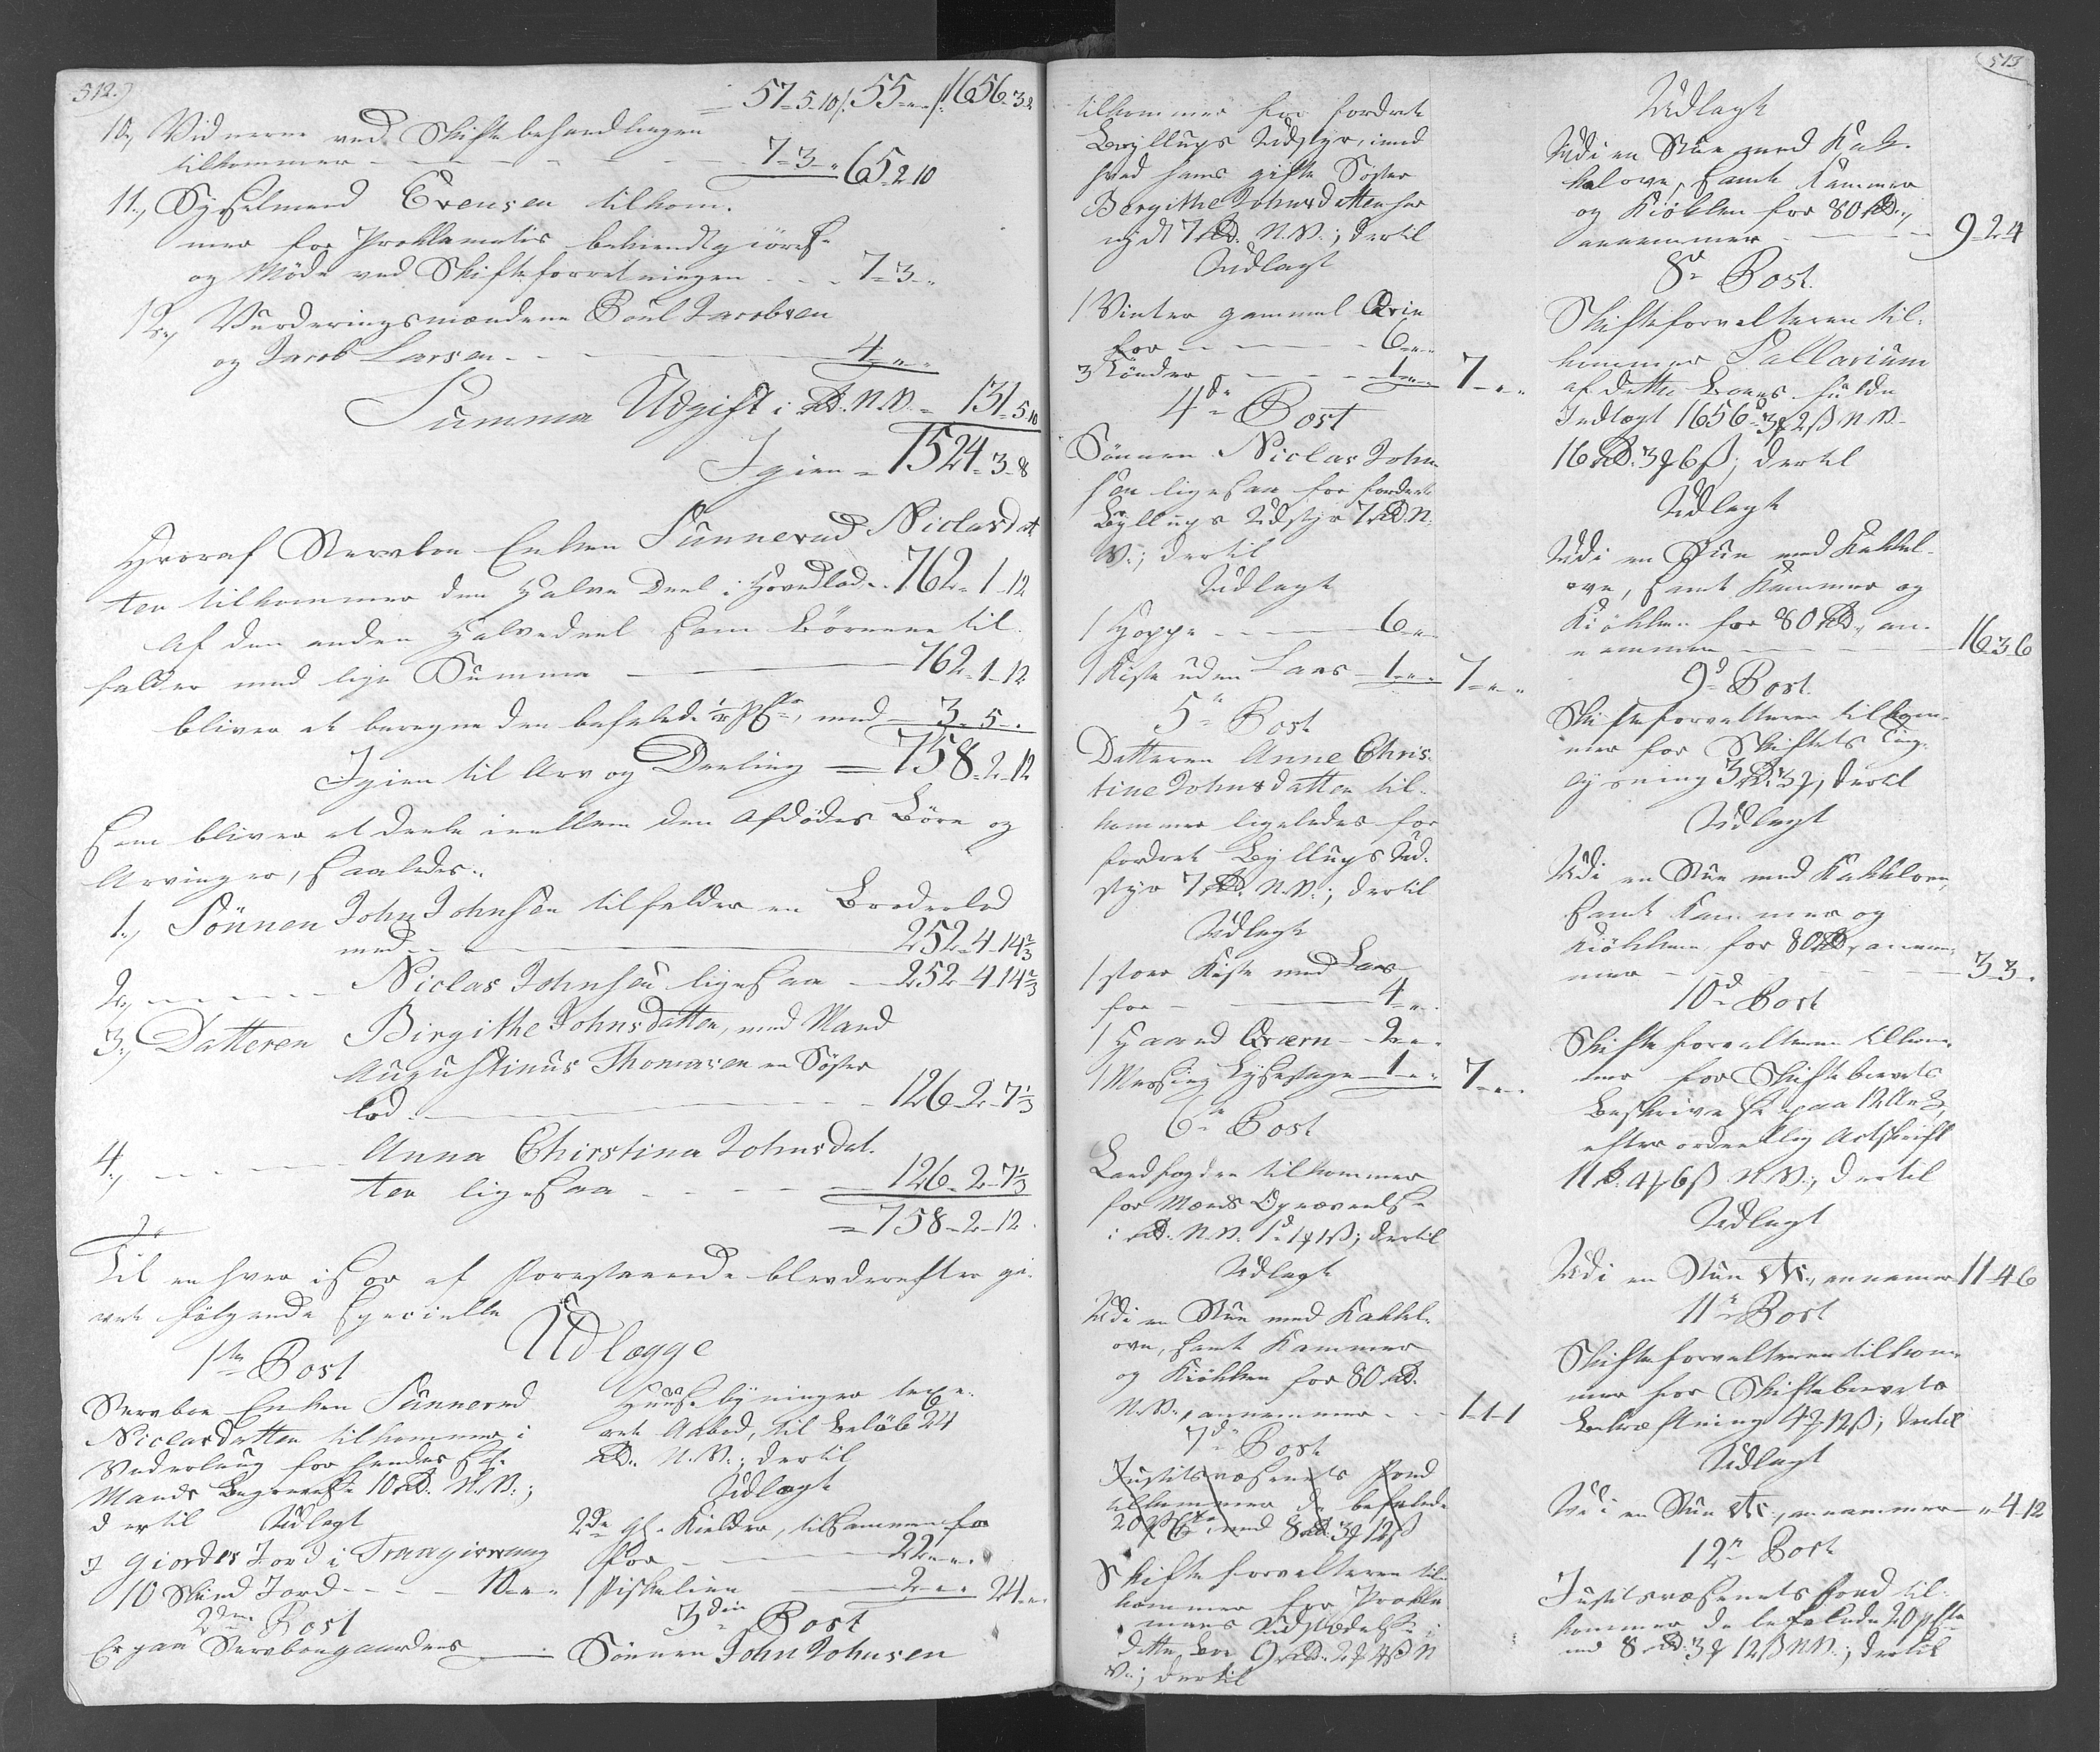 512.)
57-5-10/. 55-"-"/. 1656-3-2
10., Vidnerne ved Skiftebehandlingen
tilkommer - - - - - 7-3-" 65-2-10
11., Sysselmand Evensen tilkom-
mer for Proklamatis bekiendtgiörelse
og Möde ved Skifteforretningen - - - 7-3-"
12., Vurderingsmændene Poul Jacobsen
og Jacob Larsen - - - 4-"-"
Summa Udgift i RD. N.V. = 131-5-10
Igien = 1524-3-8
Hvoraf Stervboe Enken Sunneva Niclasdat
ter tilkommer den Halve Deel i Hovedlod - 762-1-12
Af den anden Halvedeel som Börnene til-
falder med lige Summa - 762-1-12
bliver at beregne den befalede ½ pCto, med - 3-5-"
Igien til Arv og Deeling = 758-2-12
som bliver at deele imellem den Afdödes Börn og
Arvinger, saaledes:
1., Sönnen John Johnsen tilfalder en Broderlod
med - 252-4-14⅔
2., - - - Niclas Johnsen ligesaa - 252-4-14⅔
3., Datteren Birgithe Johnsdatter, med Mand
Augustinus Thomasen en Söster
lod - 126-2-7⅓
4., - - - Anna Chirstina Johnsdat-
ter ligesaa - - - 126-2-7⅓
= 758-2-12.
Til enhver især af Forestaaende blev derefter gi-
vet fölgende Specielle
Udlægge
1ste Post
Stervboe Enken Sunneva
Niclasdatter tilkommer i
Vederlaug for hendes Sl.
Mands Begravelse 10 RD. N.V.;
dertil Udlagt
I Giorders Jord i Trangisvaag
10 Skind Jord - - - 10-"-"
2den Post
Er paa Stervboegaardens
Huusebygninger lexe-
ret Aabod, til Belöb 24
RD. N.V.; dertil
Udlagt
2de Gl. Kieldre, tilsammen for
for - - - 22-"-"
1 Fiskeliine - 2-"-" 24-"-"
3die Post
Sönnen John Johnsen
513
tilkommer for fordret
Bryllups Udstyr, imod
hvad hans gifte Söster
Bergithe Johnsdatter har
nydt 7 RD. N.V.; dertil
Udlagt
1 Vinter gammel Qvie
for - - - 6-"-"
3 Tönder - - - 1-"-" 7-"-"
4de Post
Sönnen Niclas John-
sen ligesaa for fordret
Bryllups Udstyr 7 RD. N.
V.; dertil
Udlagt
1 Hoppe - - - 6-"-"
1 Kiste uden Laas - 1-"-" 7-"-"
5te Post
Datteren Anne Chris-
tine Johnsdatter til-
kommer ligeledes for
fordret Bryllups Ud-
styr 7 RD. N.V.; dertil
Udlagt
1 stor Kiste med Laas
for - 4-"-"
1 Haand Qværn - 2-"-"
1 Messing Lysestage - 1-"-" 7-"-"
6te Post
Landfogden tilkommer
i RD. N.V. 1d 1ȝ 1ß; dertil
Udlagt
Udi en Stue med Kakkel-
ovn, samt Kammer
og Kiökken for 80 RD.
N.V., annammer - - 1-1-1
7de Post
Justitsvæsenets Fond
tilkommer de befalede
20 pCto, med 8 RD. 3ȝ 12ß
Skifteforvalteren til-
kommer for Prokla-
mens Udstædelse i
dette Boe 9 RD. 2ȝ 4ß N
V.; dertil
Udlagt
Udi en Stue med Kak-
kelovn, samt Kammer
og Kiökken for 80 RD.,
annammer - - - 9-2-4
8de Post.
Skifteforvalteren til-
kommer Sallarium
af dette Boes fulde
Indtægt 1656d 3ȝ 2ß N.V.
16 RD. 3ȝ 6ß; dertil
Udlagt
Udi en Stue med Kakkel-
ovn, samt Kammer og
Kiökken for 80 RD, an-
nammer - - - 16-3-6
9de Post.
Skifteforvalteren tilkom-
mer for Skiftets Ting-
lysning 3 RD. 3ȝ, dertil
Udlagt
Udi en Stue med Kakkelovn,
samt Kammer og
Kiökken for 80 RD, annam-
mer - - - 3-3-"
10de Post
Skifteforvalteren tilkom-
mer for Skiftebrevets
Beskrivelse paa 12 Ark,
efter ordentlig Actskrift
11 RD. 4ȝ 6ß N.V.; dertil
Udlagt
Udi en Stue etc., annamer 11-4-6
11te Post
Skifteforvalteren tilkom-
mer for Skiftebrevets
Bekræftning 4ȝ 12ß; dertil
Udlagt
Udi en Stue etc., annammer - "-4-12
12te Post
Justitsvæsenets Fond til-
kommer de befalede 20 pCto
med 8 RD. 3ȝ 12ß N.V.; dertil